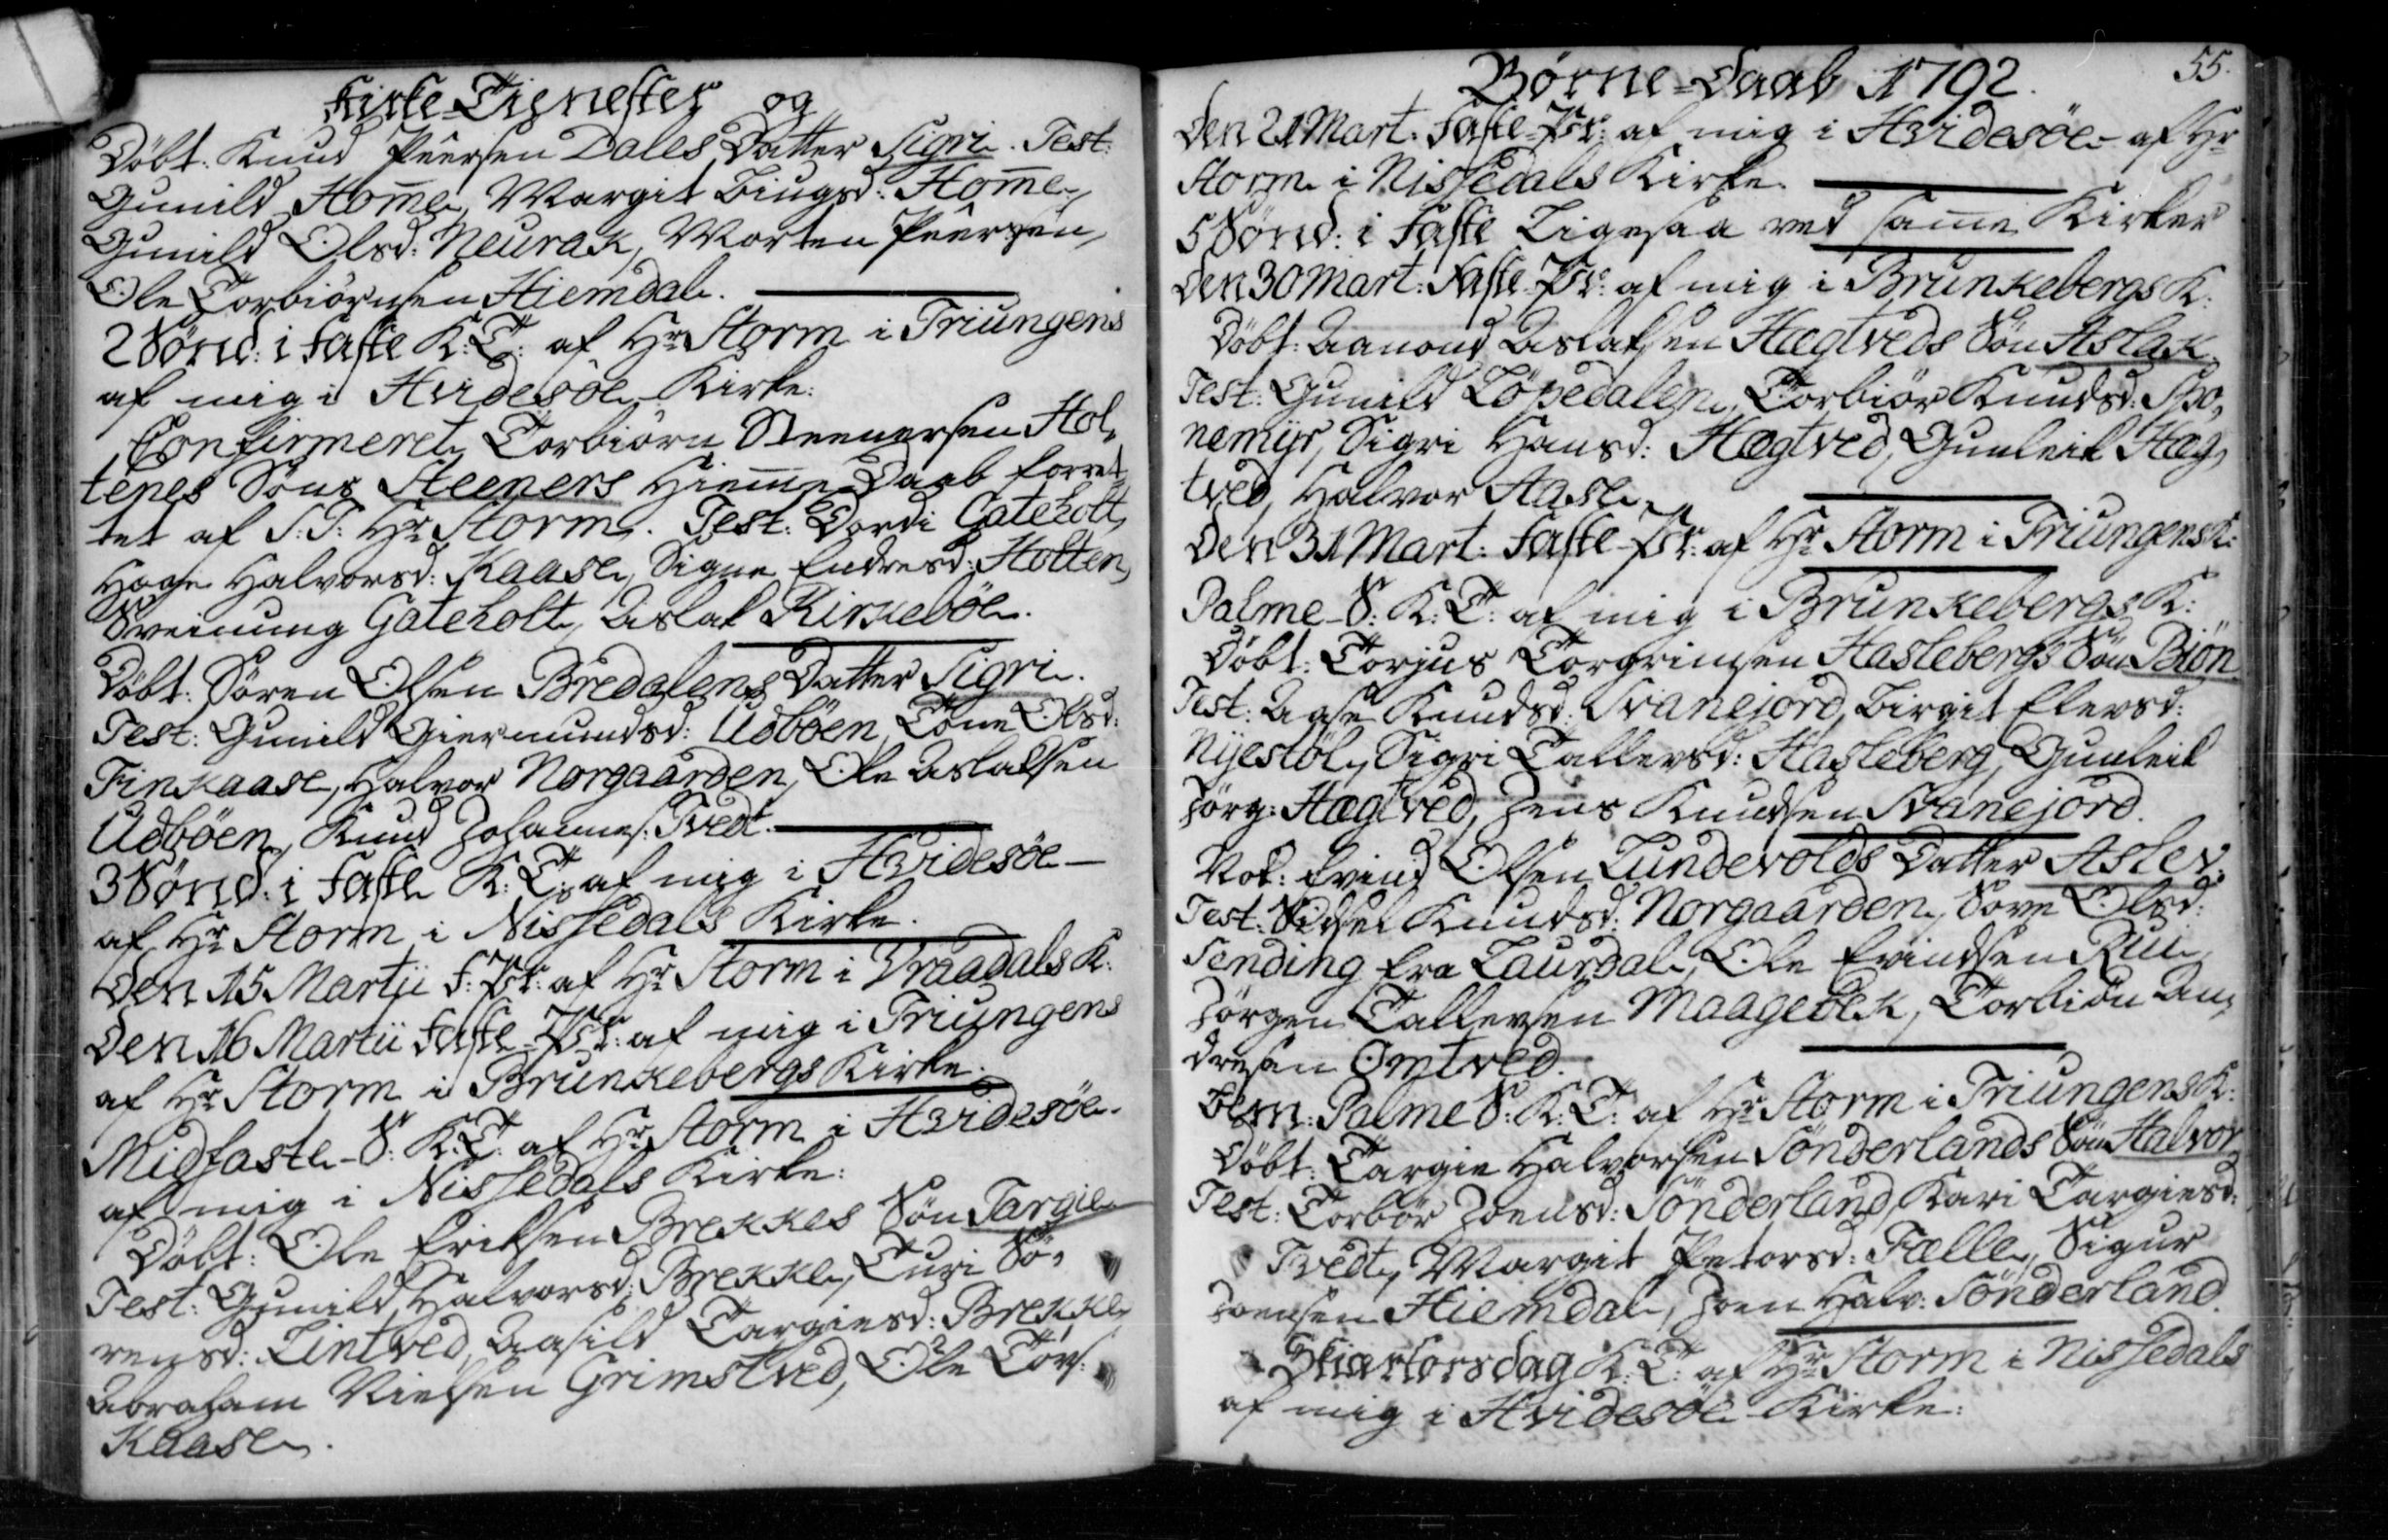 Kirke-Tienester og
Döbt: Knud Peersen Dales Datter Sigri. Test:
Gunild Home, Margit Biugsd: Home,
Gunild Olsd: Neurak, Morten Peersen,
Ole Torbiörnsen Hiemdal.
2 Sönd: i Faste K: T: af Hr Storm i Triungens
af mig i Hvidesöe Kirke:
Confirmeret Torbiörn Steenersen Hol-
tenes Söns Steeners Hieme Daab forret-
tet af S: T: Hr Storm. Test: Dordi Gateholt,
Hage Halvorsd: Kaase, Signe Endresd: Holten,
Sveinung Gateholt, Aslak Kirkeböe.
Döbt: Sören Olsen Bredalens Datter Sigri.
Test: Gunild Giermundsd: Udböen, Tone Olsd:
Finkaase, Halvor Norgaarden, Ole Aslaksen
Udböen, Knud Johannes: Tvedt.
3 Sönd: i Faste K: T: af mig i Hvidesöe
af Hr Storm i Nissedals Kirke.
Den 15 Martii F: Pr: af Hr Storm i Vraadals K:
Den 16 Martii Faste-Pr: af mig i Triungens
af Hr Storm i Brunkebergs Kirke.
Midfaste-S: K: T: af Hr Storm i Hvidesöe
af mig i Nissedals Kirke:
Döbt: Ole Eriksen Brekkes Sön Targie
Test: Gunild Halvorsd: Brekke, Turi Sö-
rensd: Lintved, Aasild Targiesd: Brekke
Abraham Nielsen Grimstved, Ole Tov:
Kaase.
Börne-Daab 1792. 55.
Den 21 Mart: Faste-Pr: af mig i Hvidesöe af Hr
Storm i Nissedals Kirke.
5 Sönd: i Faste Ligesaa ved same Kirker
Den 30 Mart: Faste-Pr: af mig i Brunkebergs K:
Döbt: Aanond Aslaksen Hægtveds Sön Aslak.
Test: Gunild Löpedalen, Torbiör Knudsd: Spo-
nemyr, Sigri Hansd: Hægtved, Gunleik Hæg-
tved, Halvor Aase.
Den 31 Mart: Faste-Pr: af Hr Storm i Triungens K:
Palme-S: K: T: af mig i Brunkebergs K:
Döbt: Torjus Torgrimsen Haslebergs Sön Biön
Test: Aase Knudsd: Svanejord, Birgit Elevsd:
Nyestöl, Sigri Tallevsd: Hasleberg, Gunleik
Jörg: Hægtved, Jens Knudsen Svanejord.
Nok: Evind Olsen Lundevolds Datter Aslev:
Test: Sidsel Knudsd: Norgaarden, Söve Olsd:
Sending fra Laurdal, Ole Evindsen Rui,
Jörgen Tallevsen Maagebek, Torbiön An-
dresen Omtved.
Dem: Palme S: K: T: af Hr Storm i Triungens K:
Döbt: Targie Halvorsen Sönderlands Sön Halvor
Test: Torbör Joensd: Sönderland, Kari Targiesd:
Tvedt, Margit Petersd: Fælle, Sigur
Joensen Hiemdal, Joen Halv: Sönderland.
Skiertorsdag K: T: af Hr Storm i Nissedals
af mig i Hvidesöe Kirke: